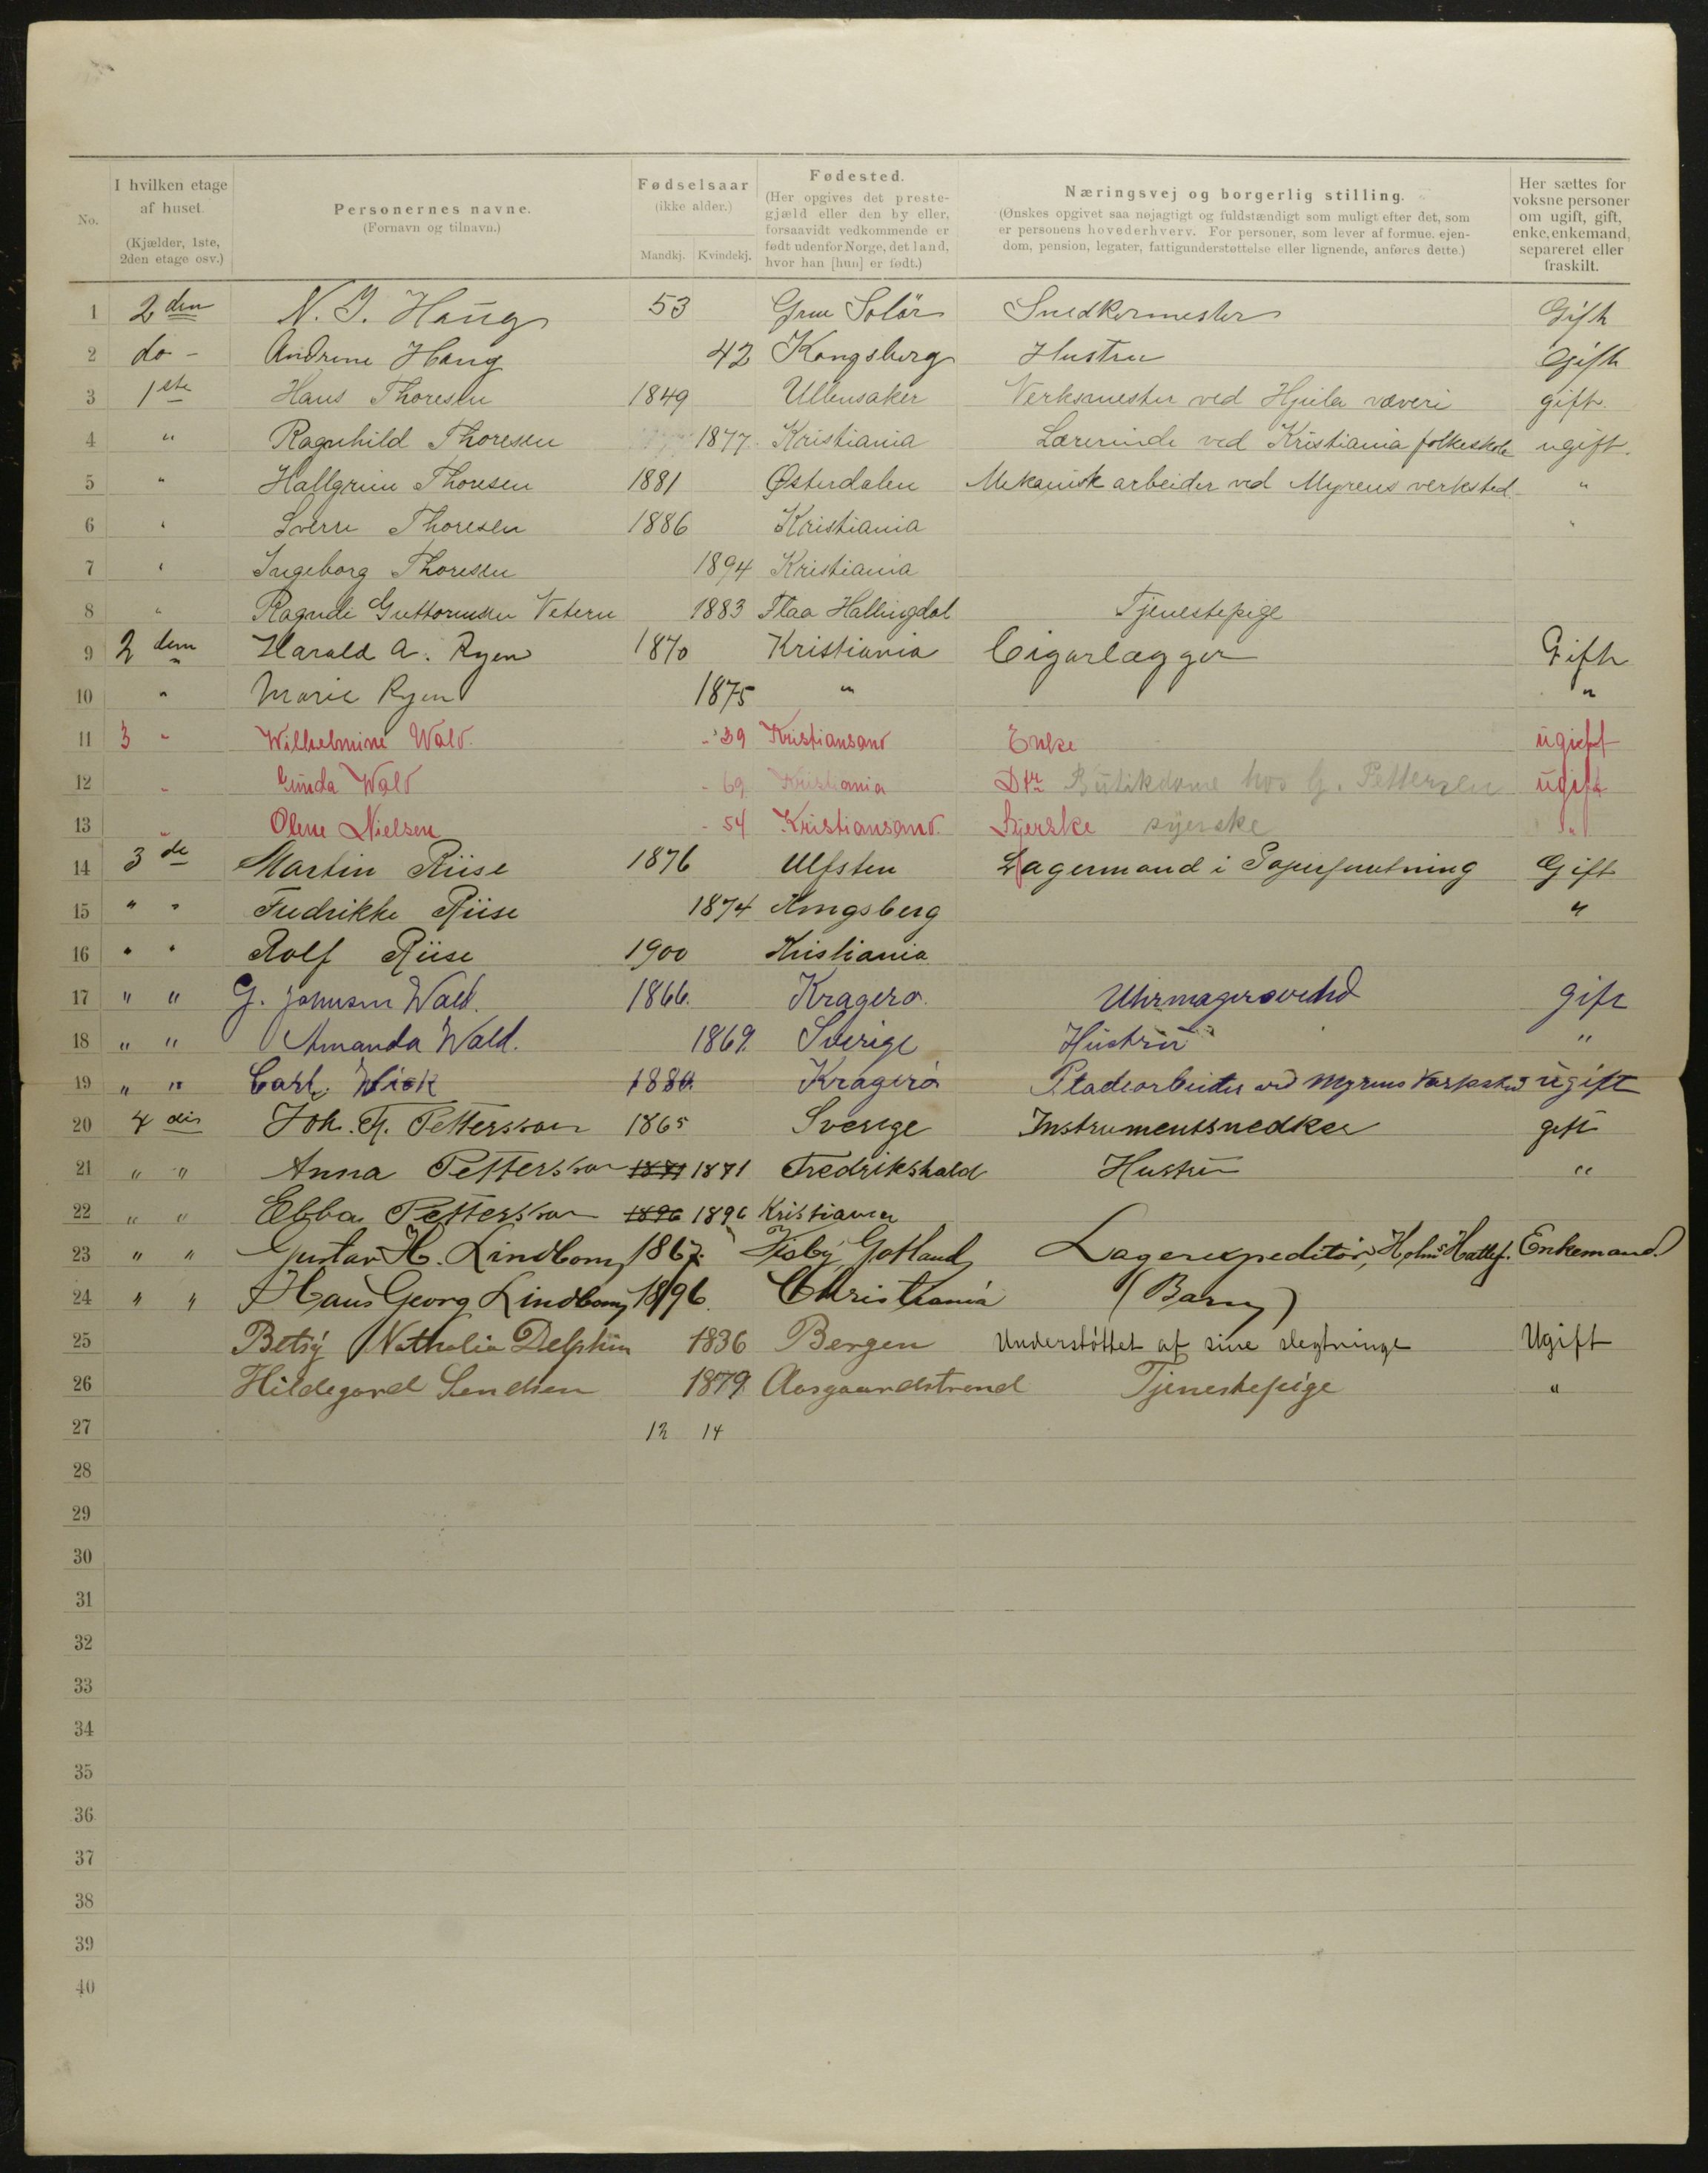 No.
I hvilken etage af huset. (Kjælder, 1ste, 2den etage osv.)
Personernes navne. (Fornavn og tilnavn.)
Fødselsaar (ikke alder.) Mandkj. Kvindekj.
Fødested. (Her opgives det prestegjæld eller den by eller, forsaavidt vedkommende er født udenfor Norge, det land, hvor han [hun] er født.)
Næringsvej og borgerlig stilling. (Ønskes opgivet saa nøjagtigt og fuldstændigt som muligt efter det, som er personens hovederhverv. For personer, som lever af formue, ejendom, pension, legater, fattigunderstøttelse eller lignende, anføres dette.)
Her sættes for voksne personer om ugift, gift, enke, enkemand, separeret eller fraskilt.
1 2den N. J. Haug 53 Grue Solør Snedkermester Gift
2 do - Andrine Haug 42 Kongsberg Hustru Gift
3 1ste Hans Thoresen 1849 Ullensaker Verksmester ved Hjula væveri gift.
4 " Ragnhild Thoresen 1877. Kristiania Lærerinde ved Kristiania folkeskole ugift.
5 " Hallgrim Thoresen 1881 Østerdalen Mekanisk arbeider ved Myrens verksted. "
6 " Sverre Thoresen 1886 Kristiania "
7 " Ingeborg Thoresen 1894 Kristiania
8 " Ragndi Guttormsen Vetern 1883 Flaa Hallingdal Tjenestepige
9 2den Harald A. Ryen 1870 Kristiania Cigarlægger Gift
10 " Marie Ryen 1875 " "
11 3 " Wilhelmine Wald. 39 Kristiansand Enke ugift
12 " Gunda Wald 69 Kristiania Dtr Butikdame hos G. Pettersen ugift
13 " Olene Nielsen 54 Kristiansand. Syerske syerske "
14 3de Martin Riise 1876 Ulfsten Lagermand i Gift
15 " " Fredrikke Riise 1874 Kongsberg "
16 " " Rolf Riise 1900 Kristiania
17 " " G. Johnsen Wald. 1866. Kragerø. Uhrmagersvend gift
18 " " Amanda Wald. 1869. Sverige Hustru "
19 " " Carl. Wick 1880. Kragerø Pladearbeider ved Myrens Værksted ugift
20 4die Joh. Fr. Pettersson 1865 Sverige Instrumentsnedker gift
21 " " Anna Pettersson 1871 1871 Fredrikshald Hustru "
22 " " Ebba Pettersson 1896 1896 Kristiania
23 " " Gustav H. Lindbom, 1867. Visby, Gotland, Lagerexpeditør, Holms Hattef. Enkemand.
24 " " Hans Georg Lindbom, 1896. Christiania (Barn)
25 Betsy Nathalia Delphin 1836 Bergen Understøttet af sine slegtninge Ugift
26 Hildegard Sendsen 1879 Aasgaardstrand Tjenestepige "
27 12 14
28
29
30
31
32
33
34
35
36
37
38
39
40